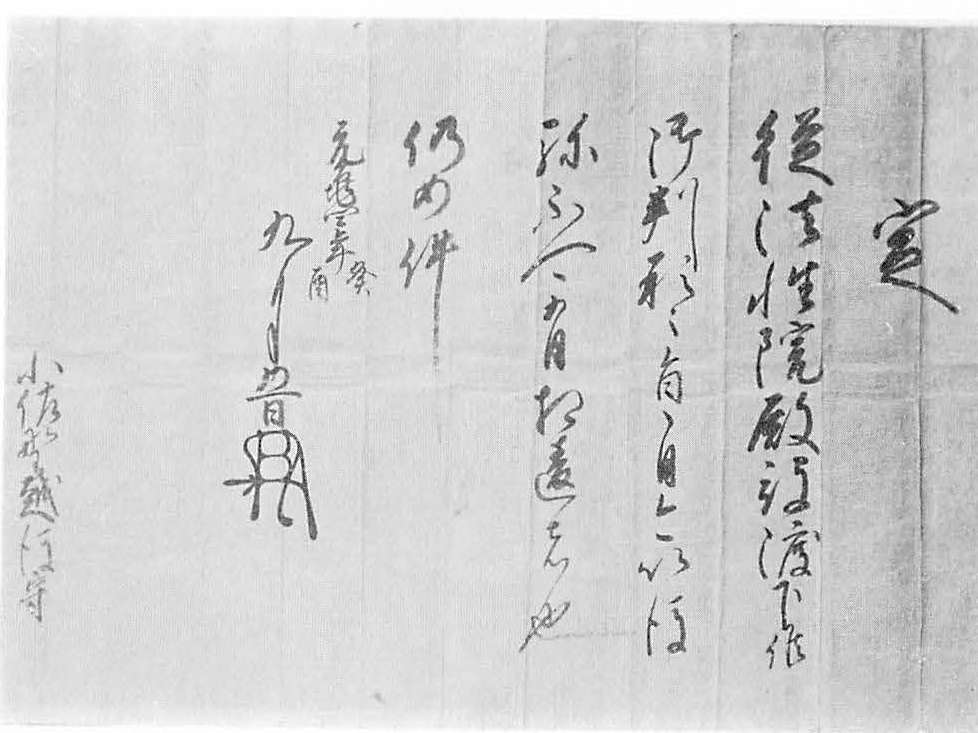 定
従法性院殿被渡下候
御判形之旨自今以後
弥不可有相違者也
仍如件
元亀四年癸酉
九月廿一日
小佐野越後守